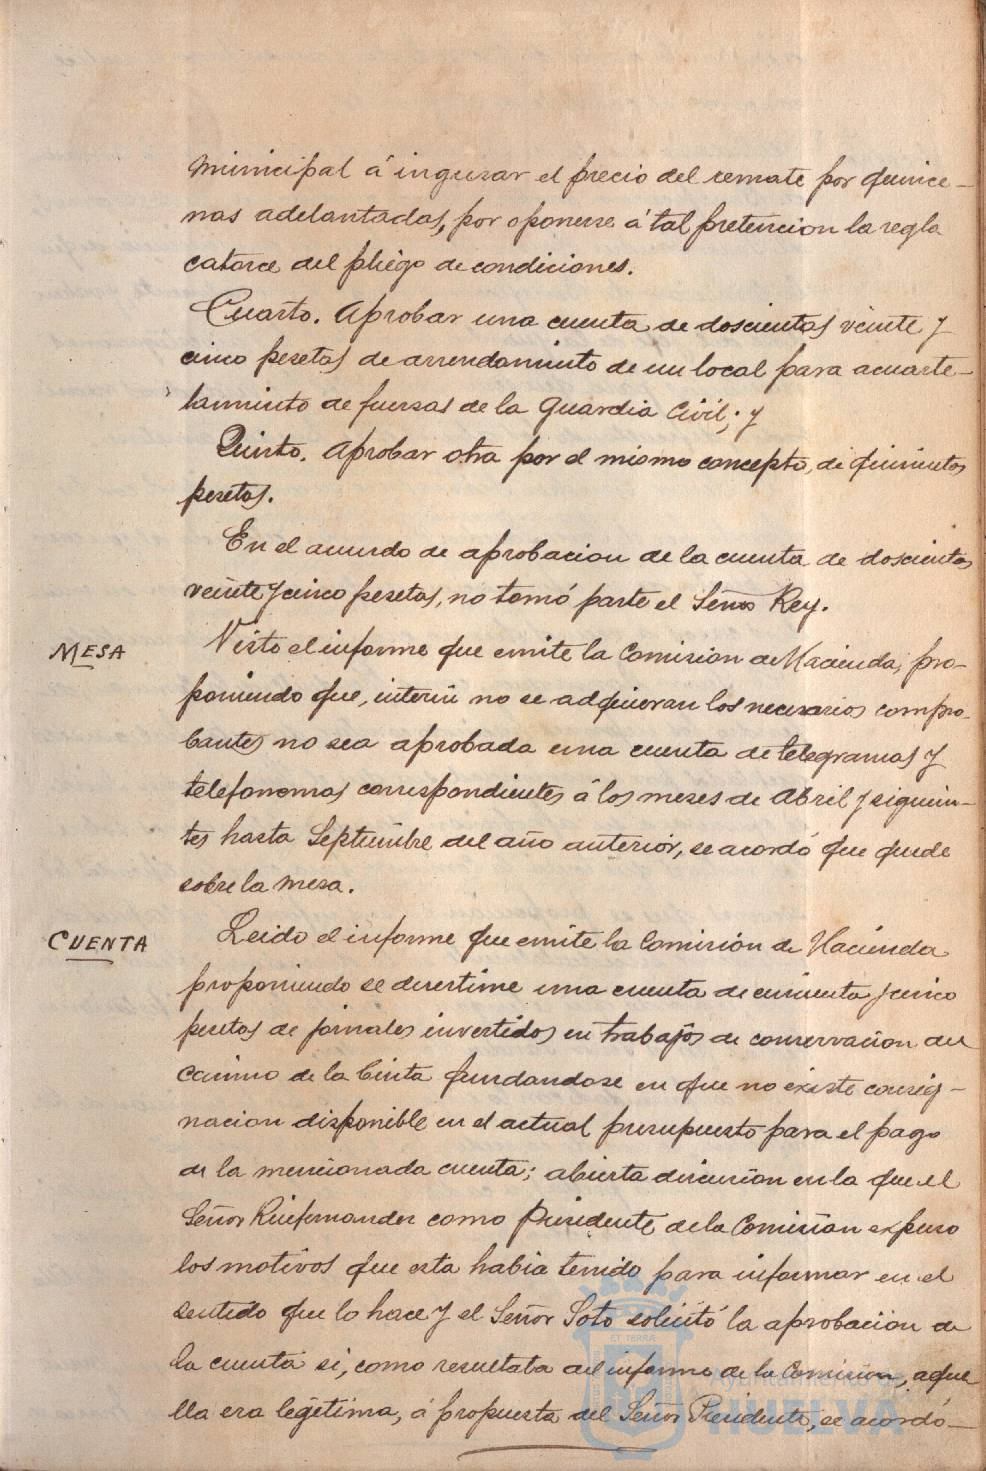 municipal á ingresar el precio del remate por quince-
nas adelantadas, por oponerse á tal pretencion la regla
catorce del pliego de condiciones.
Cuarto. Aprobar una cuenta de doscientas veinte y
cinco pesetas de arrendamiento de un local para acuarte-
lamiento de fuersas de la Guardia Civil; y
Quinto. Aprobar otra por el mismo concepto, de quinientas
pesetas.
En el acuerdo de aprobacion de la cuenta de doscientas
veinte y cinco pesetas, no tomó parte el Señor Rey.
MESA
Visto el informe que emite la Comision de Hacienda, pro-
poniendo que, interin no se adquieran los necesarios compro-
bantes no sea aprobada una cuenta de telegramas y
telefonomas correspondientes á los meses de Abril y siguien-
tes hasta Septiembre del año anterior, se acordó que quede
sobre la mesa.
CUENTA
Leido el informe que emite la Comisión de Hacienda
proponiendo se desestime una cuenta de cincuenta y cinco
pesetas de jornales invertidos en trabajos de conservacion del
camino de la Cinta fundandose en que no existe consig-
nacion disponible en el actual presupuesto para el pago
de la mencionada cuenta; abierta discusion en la que el
Señor Ruifernandez como Presidente de la Comisión expuso
los motivos que esta habia tenido para informar en el
sentido que lo hace y el Señor Soto solicitó la aprobacion de
la cuenta si, como resultaba del informe de la Comision, aque
lla era legitima, á propuesta del Señor Presidente, se acordó-
ET TERRA
Ayuntamiento de
HUELVA